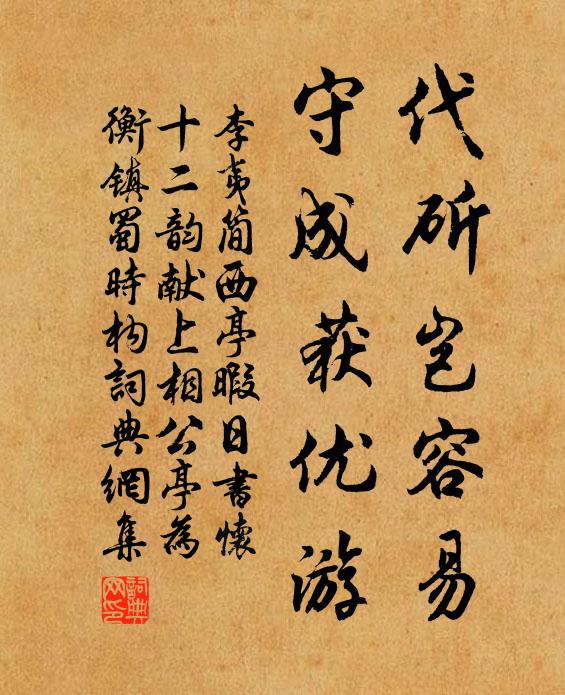 代斫岂容易
守成获优游
李夷简西亭暇日书怀
十二韵献上相公亭為
衡镇蜀時构詞典網集
詞典网印